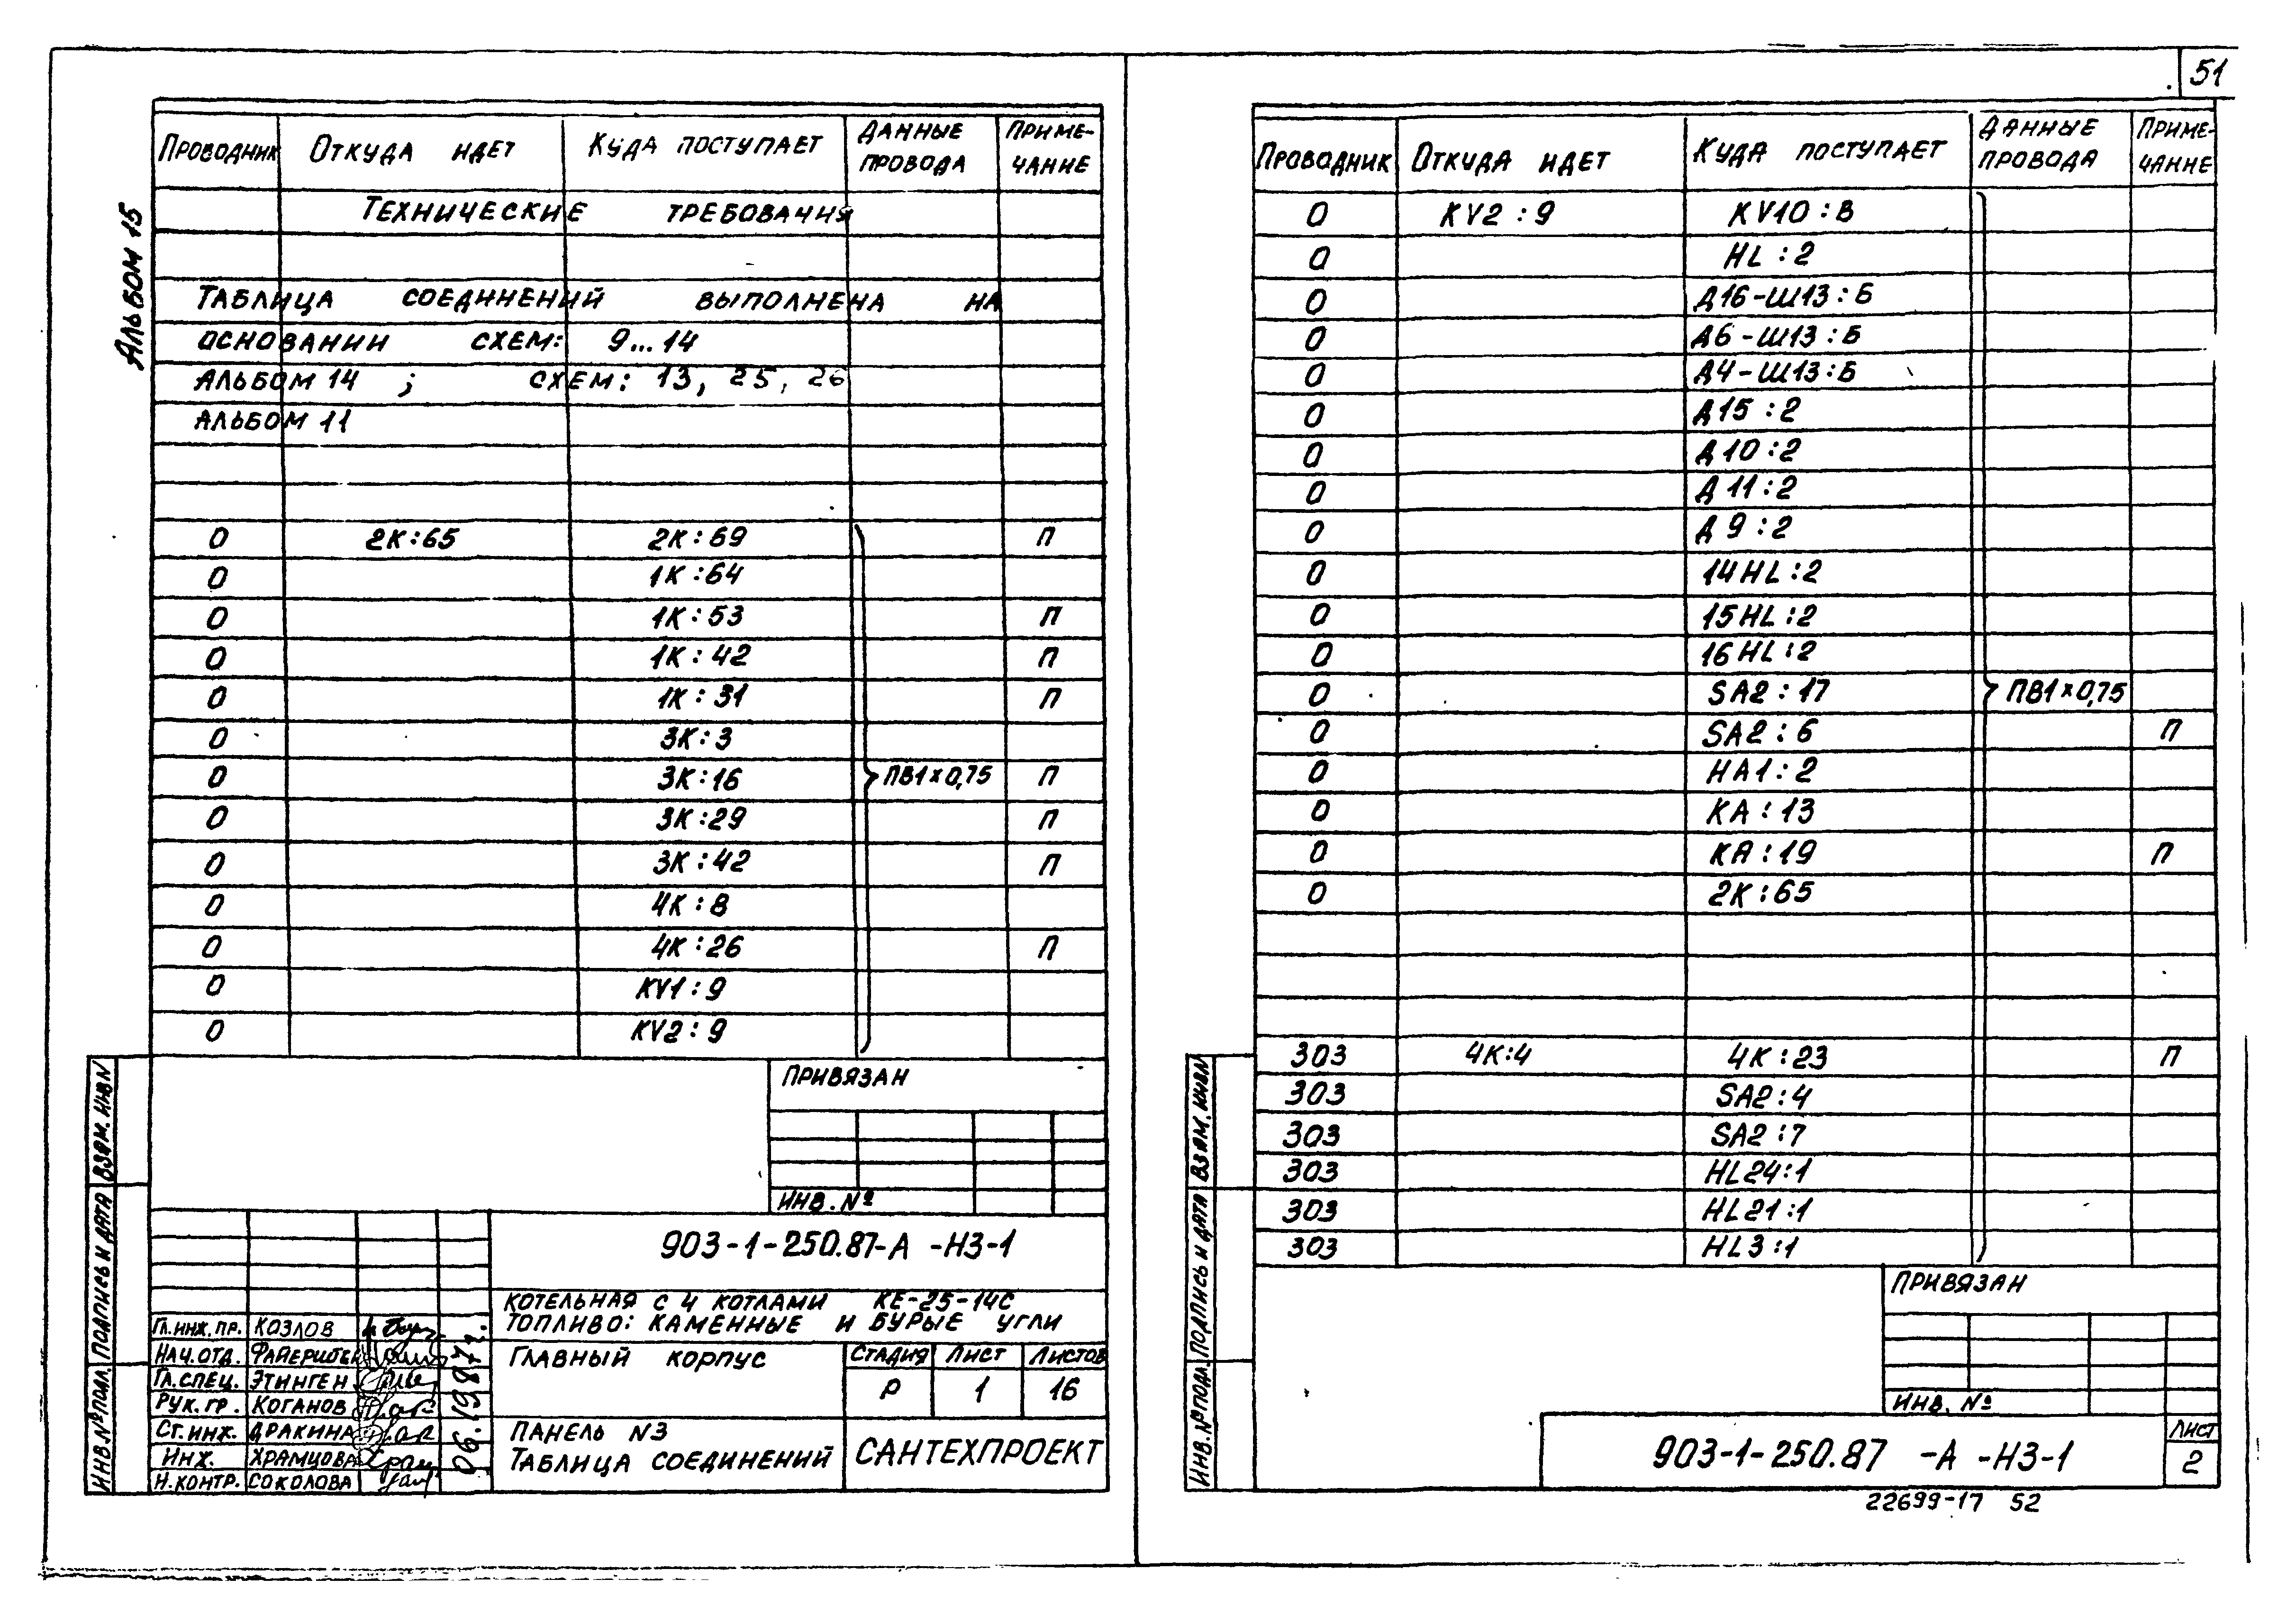 51
Альбом 15
Проводник Откуда идет Куда поступает Данные провода Примечание
Технические требования
Таблица соединений выполнена на
основании схем: 9...14
альбом 14 ; схем: 13, 25, 26
альбом 11
0 2К:65 2К:69 П
0 1К:64
0 1К:53 П
0 1К:42 П
0 1К:31 П
0 3К:3
0 3К:16 ПВ1×0,75 П
0 3К:29 П
0 3К:42 П
0 4К:8
0 4К:26 П
0 KV1:9
0 KV2:9
Привязан
Инв. №
903-1-250.87-А -Н3-1
Котельная с 4 котлами КЕ-25-14С
Топливо: каменные и бурые угли
Гл.инж.пр. Козлов
Нач.отд.
Гл.спец. Этинген
Рук.гр. Коганов
Ст.инж. Дракина
Инж. Храмцова
Н.контр. Соколова
06.1987г.
Главный корпус
Стадия Лист Листов
Р 1 16
Панель N3
Таблица соединений
САНТЕХПРОЕКТ
Инв.№подл. Подпись и дата Взам.инвN
Проводник Откуда идет Куда поступает Данные провода Примечание
0 KV2:9 KV10:В
0 HL:2
0 Д16-Ш13:Б
0 Д6-Ш13:Б
0 Д4-Ш13:Б
0 Д15:2
0 Д10:2
0 Д11:2
0 Д9:2
0 14HL:2
0 15HL:2
0 16HL:2
0 SA2:17 ПВ1×0,75
0 SA2:6 П
0 HA1:2
0 KA:13
0 KA:19 П
0 2К:65
303 4К:4 4К:23 П
303 SA2:4
303 SA2:7
303 HL24:1
303 HL21:1
303 HL3:1
Привязан
Инв. №
903-1-250.87 -А -Н3-1
Лист
2
Инв.№подл. Подпись и дата Взам.инвN
22699-17 52